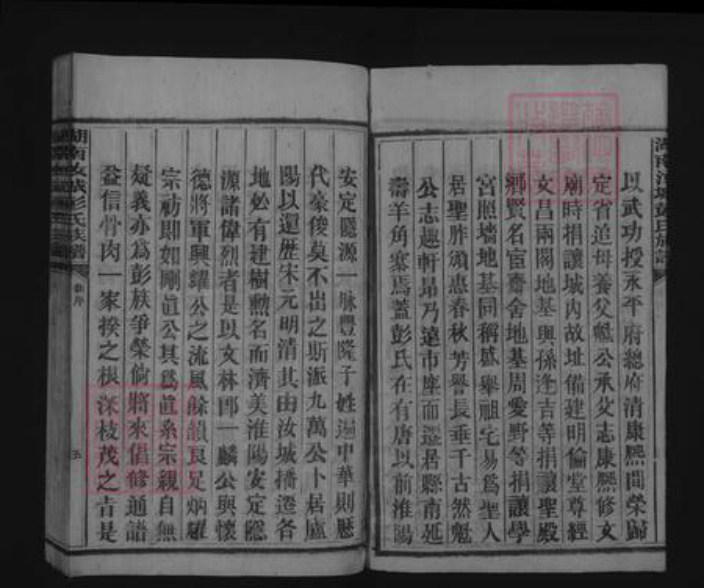 以武功授永平府總府清康熈間榮歸
定省迨母養父魁公承父志康熈修文
廟時捐讓城內故址備建明倫堂尊經
文昌兩閣地基與孫逢吉等捐讓聖殿
鄉賢名宦齋舍地基周愛野等捐讓學
宮照墻地基同稱盛舉祖宅易爲聖人
居聖胙頒惠春秋芳譽長垂千古然魁
公志趣軒昻乃遠市塵而遷居縣南延
壽羊角寨焉蓋彭氏在有唐以前淮陽
安定隱源一脉豐隆子姓遍中華則歷
代豪俊莫不出之斯派九萬公卜居廬
陽以還歷宋元明清其由汝城播遷各
地必有建樹勲名而濟美淮陽安定隱
源諸偉烈者是以文林郎一麟公與懷
德將軍興耀公之流風餘韻良足炳耀
宗祊即如剛直公其爲眞系宗親自無
疑義亦爲彭族爭榮倘將來倡修通譜
益信骨肉一家揆之根深枝茂之旨是
湖南汝城彭氏族譜
卷序
五
湖南汝城彭氏族譜